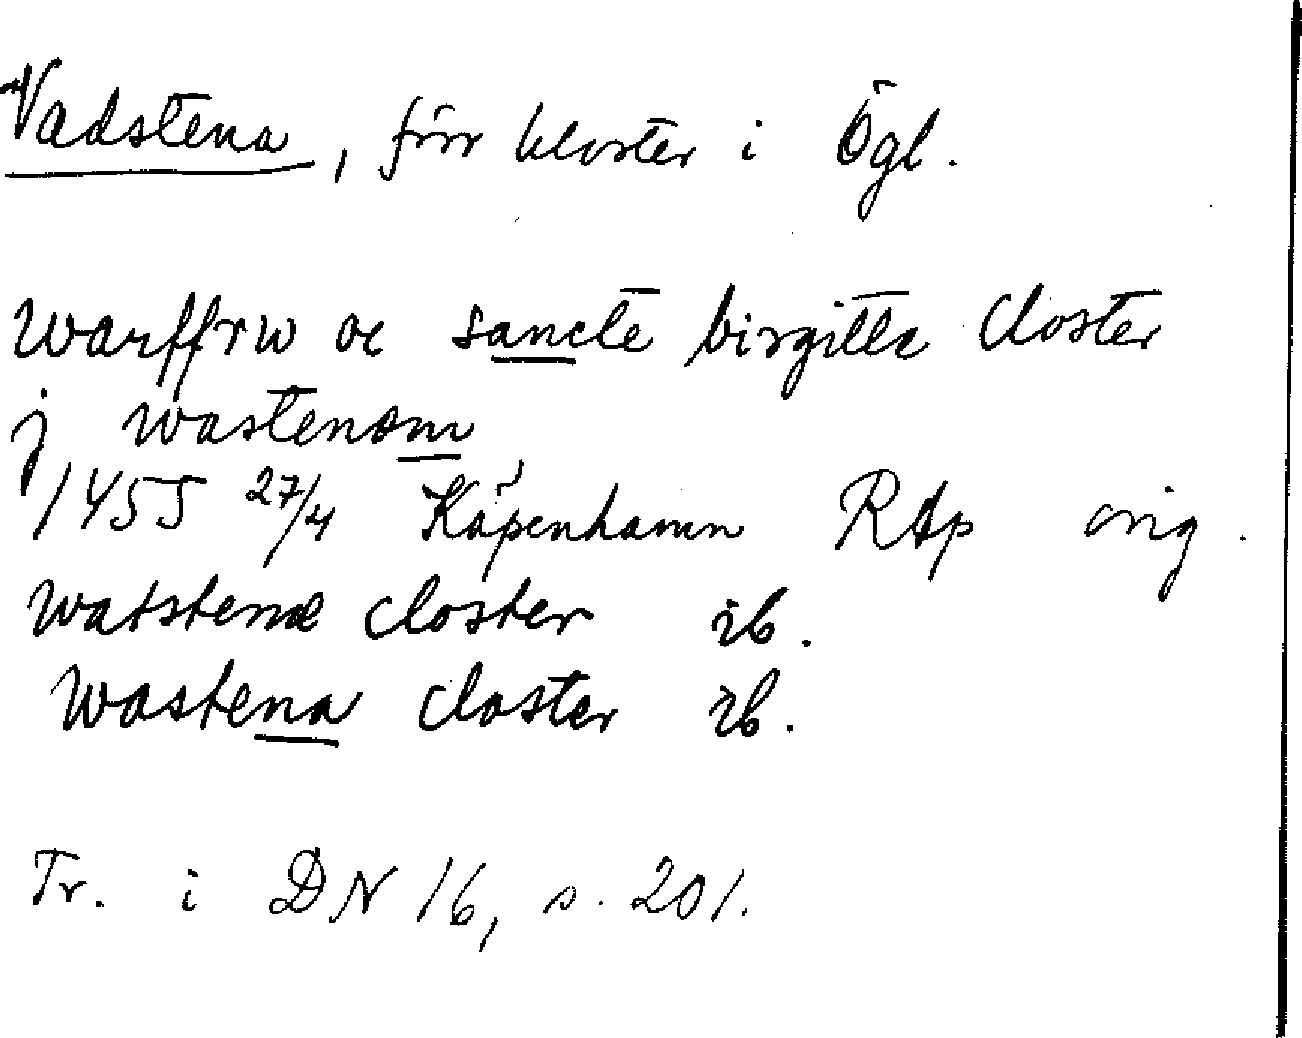 Vadstena, förr kloster i Ögl.
warffrw oc sancte birgitte closter
j wastenom
1455 27/4 Köpenhamn RAp orig.
watstenæ closter ib.
wastena closter ib.
Tr. i DN 16, s. 201.